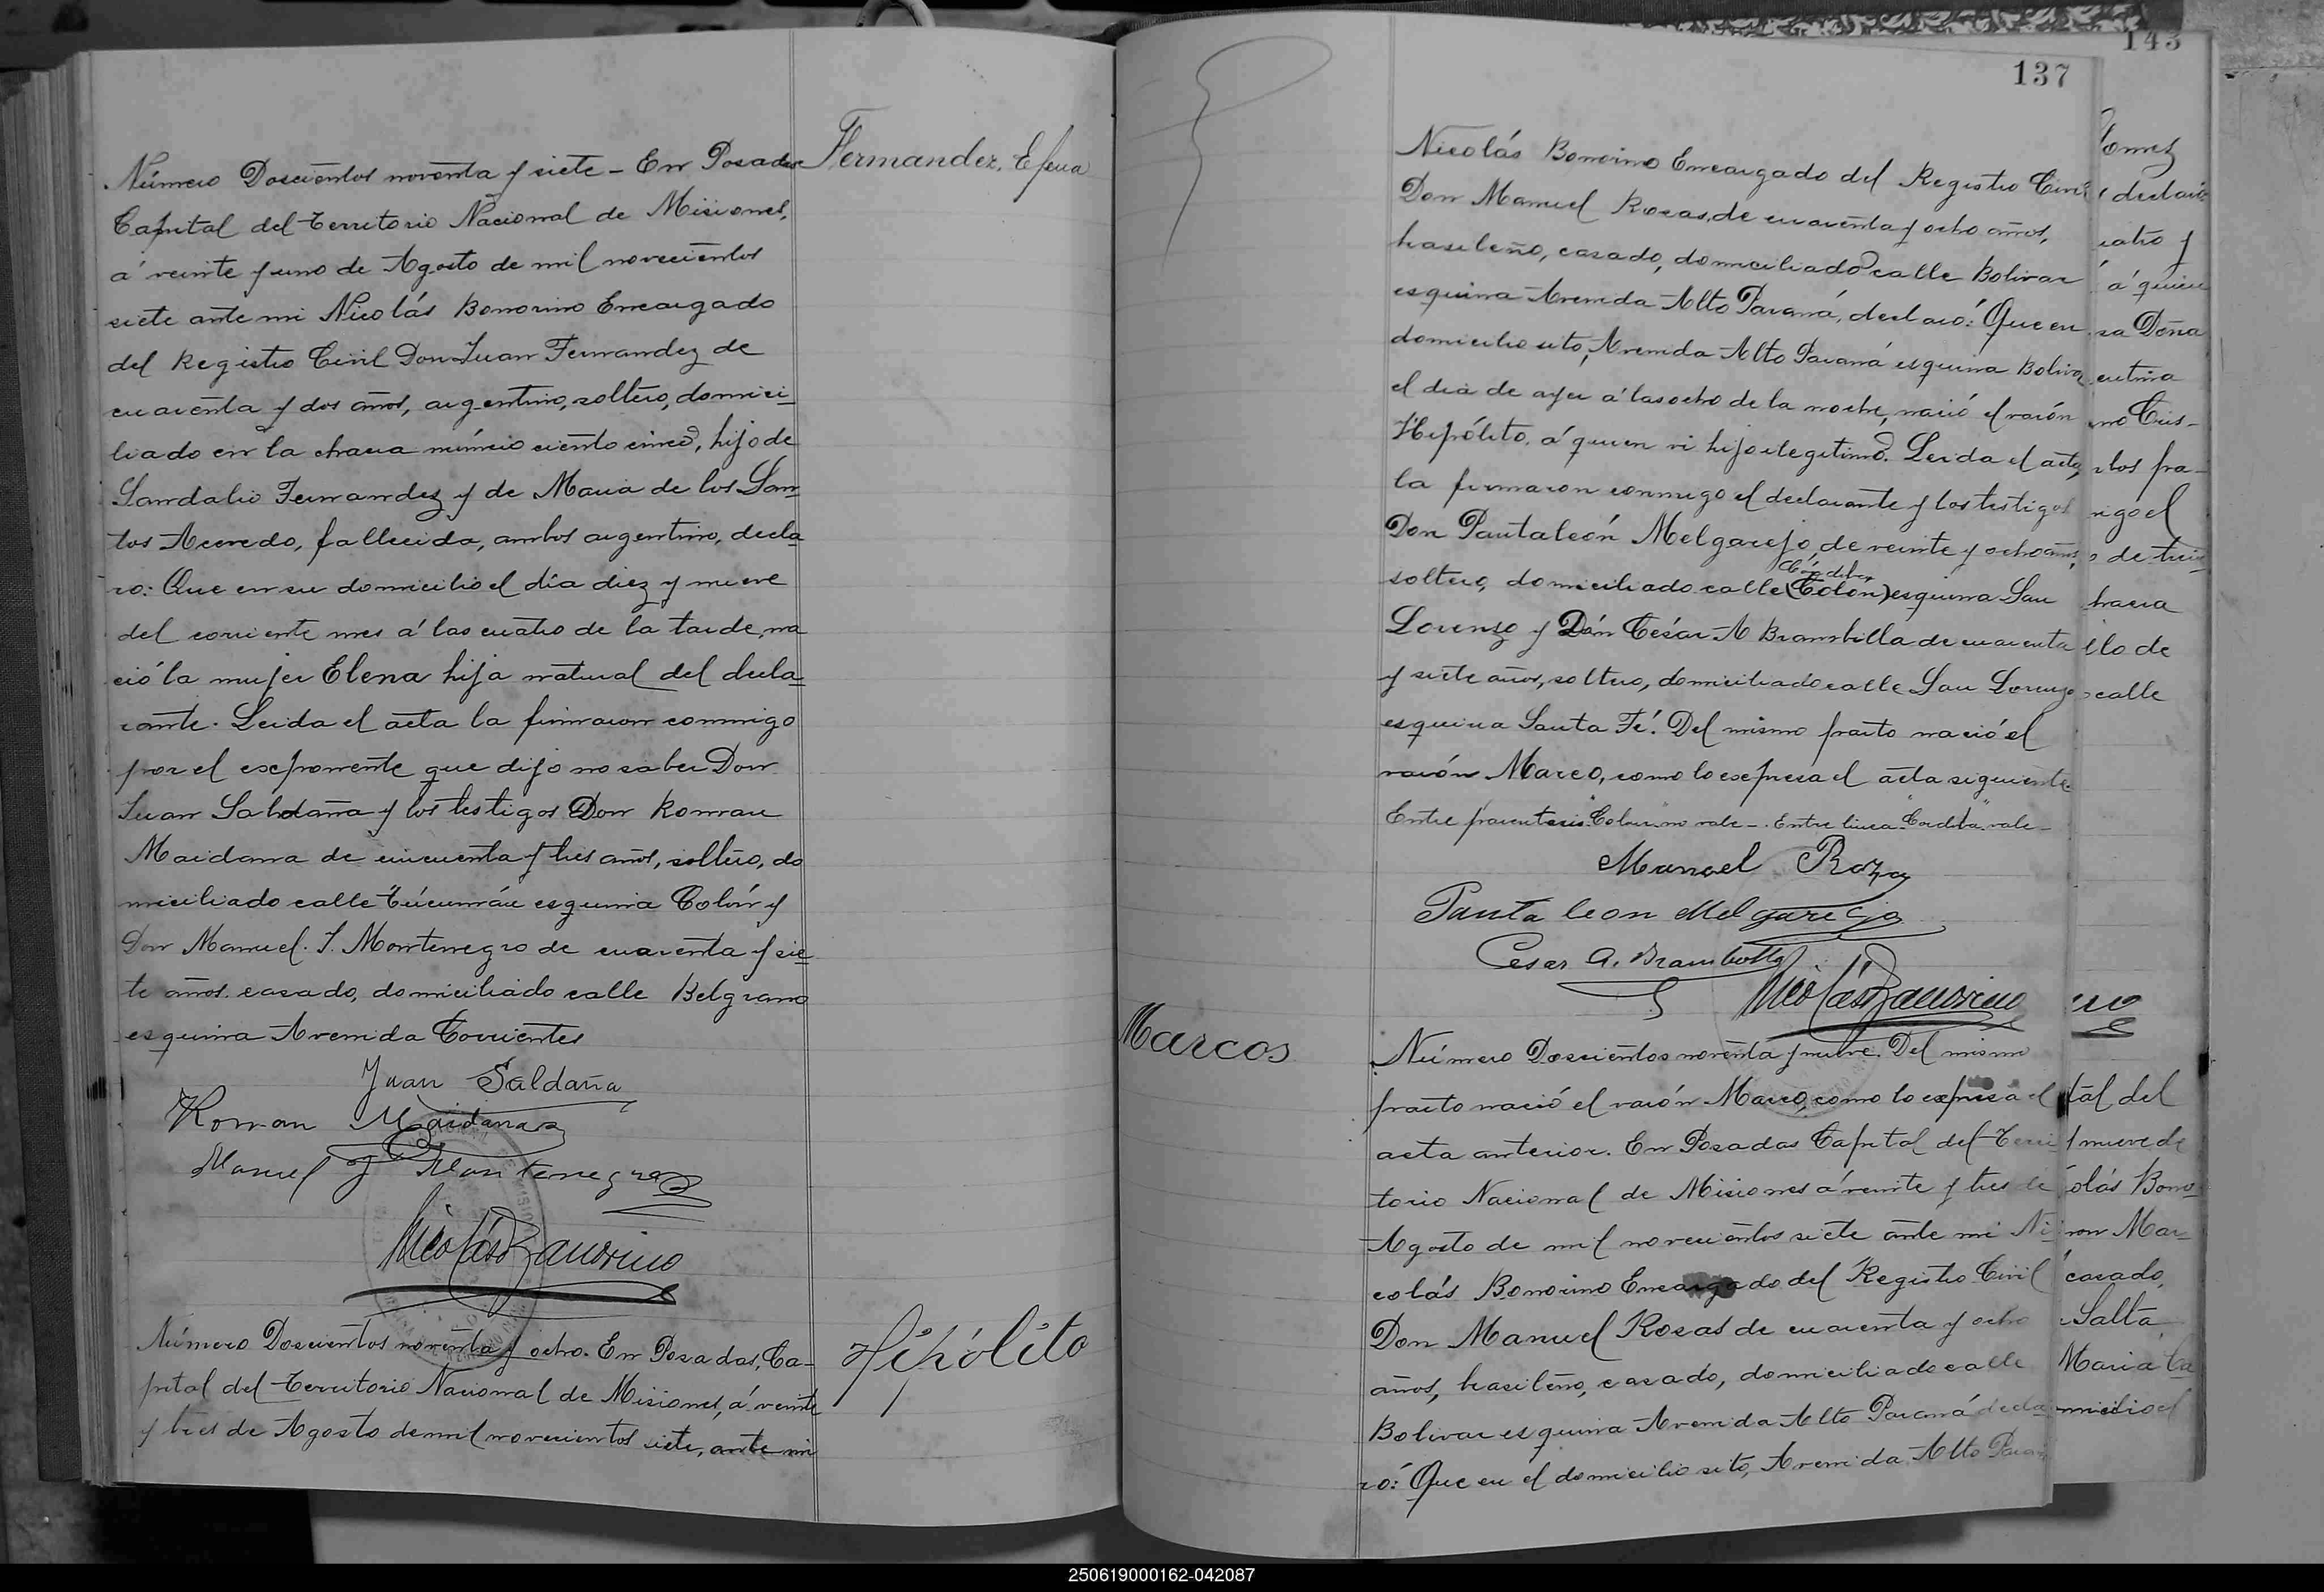 Número Doscientos noventa y siete - En Posadas
Capital del Territorio Nacional de Misiones,
á veinte y uno de Agosto de mil novecientos
siete ante mi Nicolás Bonorino Encargado
del Registro Civil Don Juan Fernandez de
cuarenta y dos años, argentino, soltero, domici-
liado en la chacra número ciento cinco, hijo de
Sandalio Fernandez y de Maria de los San-
tos Acevedo, fallecida, ambos argentino, decla-
ro: Que en su domicilio el día diez y nueve
del corriente mes á las cuatro de la tarde, na
ció la mujer Elena hija natural del decla-
rante. Leida el acta la firmaron conmigo
por el exponente que dijo no saber Don
Juan Saldaña y los testigos Don Roman
Maidana de cincuenta y tres años, soltero, do
miciliado calle Túcumán esquina Colón y
Don Manuel J. Montenegro de cuarenta y sie-
te años casado, domiciliado calle Belgrano
esquina Avenida Corrientes
Juan Saldaña
Roman Maidana
Manuel J Montenegro
Nicolás Bonorino
Número Doscientos noventa y ocho. En Posadas, Ca-
pital del Territorio Nacional de Misiones, á veinte
y tres de Agosto de mil novecientos siete, ante mi
Fernandez, Elena
Hipólito
143
137
Nicolás Bonorino Encargado del Registro Civil
Don Manuel Rosas, de cuarenta y ocho años,
brasileño, casado, domiciliado calle Bolivar
esquina Avenida Alto Paraná, declaró: Que en
domicilio sito, Avenida Alto Paraná esquina Bolivar
el dia de ayer á las ocho de la noche, nació el varón
Hipólito, á quien vi hijo legitimo. Leida el acta,
la firmaron conmigo el declarante y los testigos
Don Pantaleón Melgarejo, de veinte y ocho años,
Córdoba
soltero, domiciliado calle (Colon) esquina San
Lorenzo y Dón César A Brambilla de cuarenta
y siete años, soltero, domiciliado calle San Lorenzo
esquina Santa Fé. Del mismo parto nació el
varón Marco, como lo expresa el acta siguiente.
Entre parentesis "Colon" no vale -. Entre linea "Cordoba" vale -
Manuel Rozas
Pantaleon Melgarejo
Cesar A. Brambilla
Nicolás Bonorino
Marcos
Número Doscientos noventa y nueve. Del mismo
parto nació el varón Marco, como lo expresa el
acta anterior. En Posadas Capital del Terri-
torio Nacional de Misiones á veinte y tres de
Agosto de mil novecientos siete ante mi Ni-
colás Bonorino Encargado del Registro Civil
Don Manuel Rosas de cuarenta y ocho
años, brasileño, casado, domiciliado calle
Bolivar esquina Avenida Alto Paraná decla-
ró: Que en el domicilio sito, Avenida Alto Paraná
Gomez
declaró:
á quien
sa Doña
de
calle
tal del
nueve de
olás Bono-
Mar-
casado,
Salta
Maria
250619000162-042087